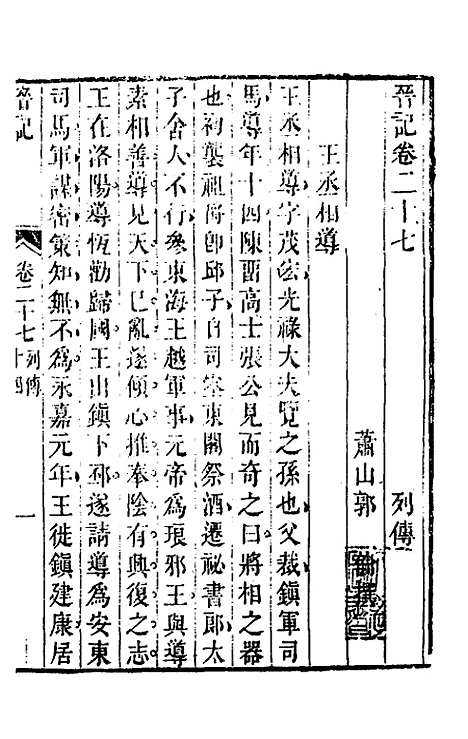 晉記卷二十七
列傳
蕭山郭
王丞相導
王丞相導字茂宏光祿大夫覽之孫也父裁鎮軍司
馬導年十四陳畱高士張公見而奇之曰將相之器
也初襲祖爵卽邱子自司空東閣祭酒遷祕書郎太
子舍人不行參東海王越軍事元帝爲琅邪王與導
素相善導見天下已亂遂傾心推奉陰有興復之志
王在洛陽導恆勸歸國王出鎮下邳遂請導爲安東
司馬軍謀密策知無不爲永嘉元年王徙鎮建康居
晉記
卷二十七
列傳
十四
一